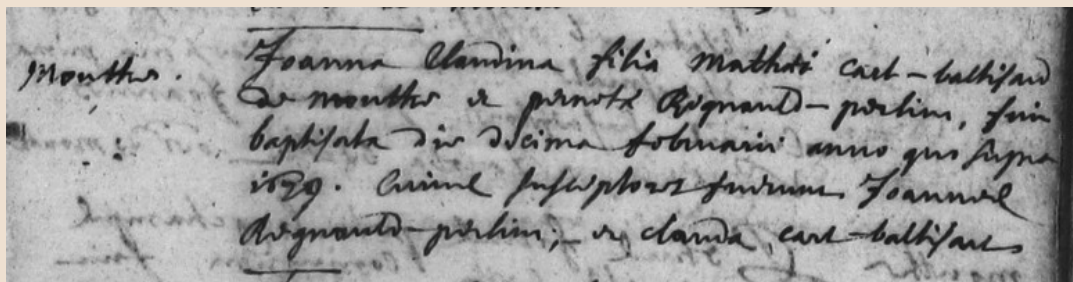 Mouthe.
Joanna Claudina filia Mathei cart-baltisard
de mouthe et pernete Regnauld-perlin, fuit
baptisata die decima februarii anno quo supra
1659. Cuius susceptores fuerunt Joannes
Regnauld-perlin; et clauda cart-baltisard